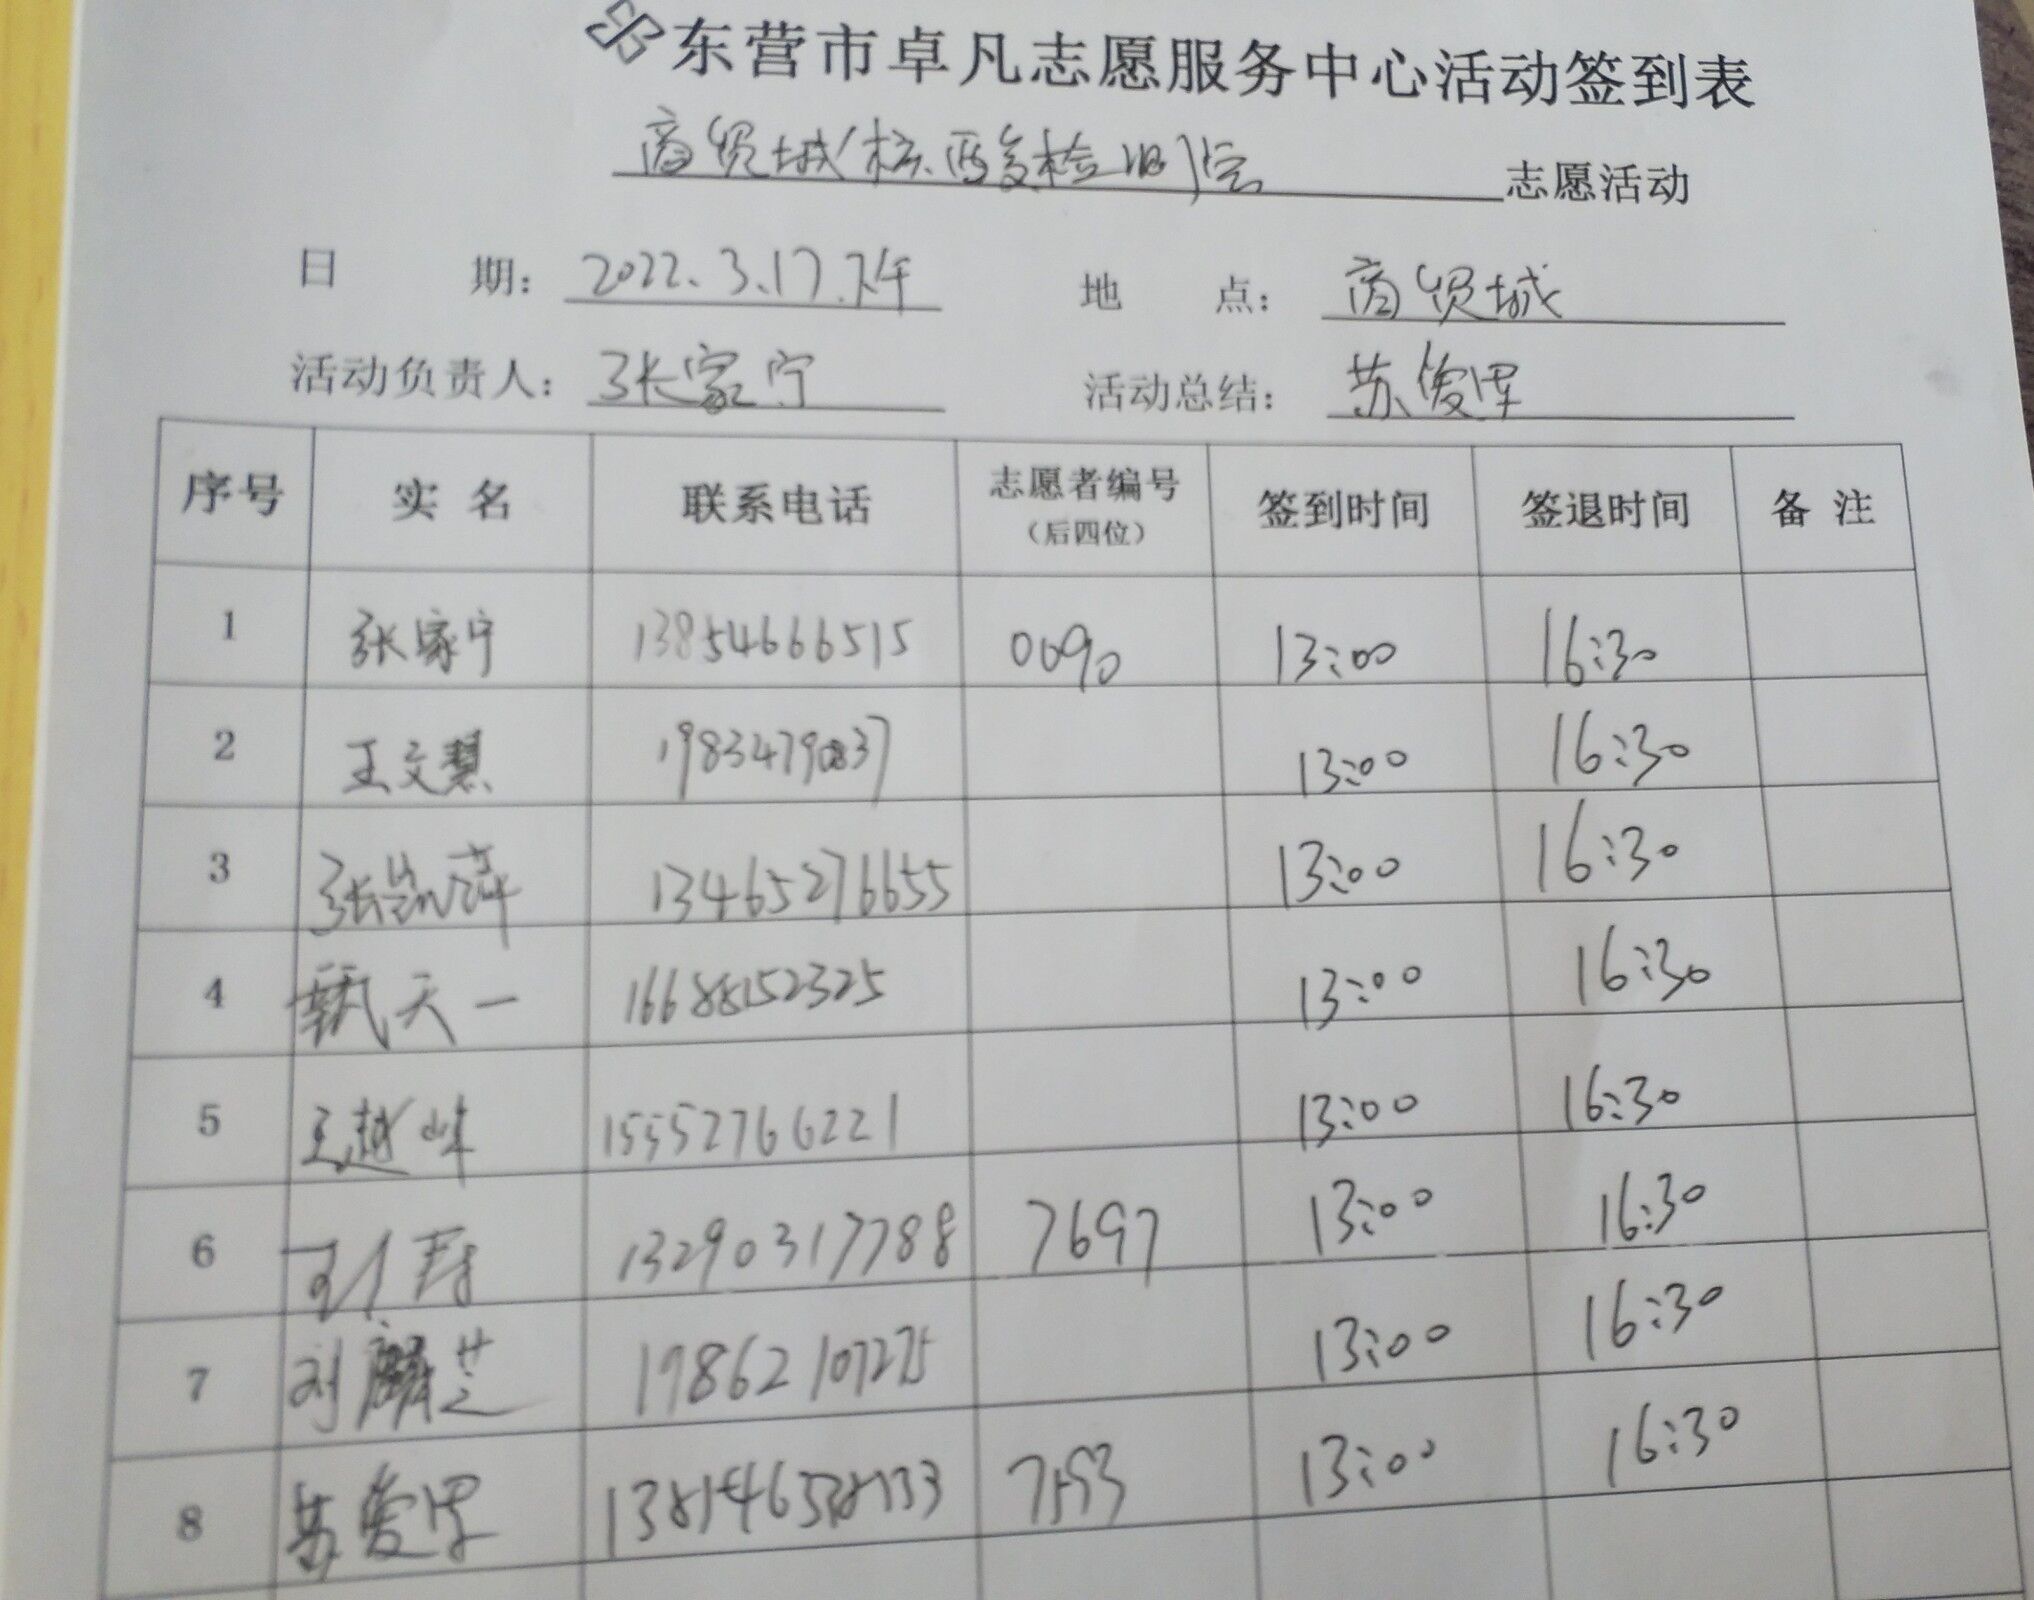 东营市卓凡志愿服务中心活动签到表
商贸城(核酸检测) 志愿活动
日 期: 2022.3.17.下午 地 点: 商贸城
活动负责人: 张家宁 活动总结: 苏俊泽
序号 实名 联系电话 志愿者编号 (后四位) 签到时间 签退时间 备注
1 张家宁 13854666515 0090 13:00 16:30
2 王文慧 19834790837 13:00 16:30
3 张凯萍 13465276655 13:00 16:30
4 甄天一 16688152325 13:00 16:30
5 王越峰 15552766221 13:00 16:30
6 13290317788 7697 13:00 16:30
7 刘麟芝 19862107275 13:00 16:30
8 苏俊泽 13:00 16:30